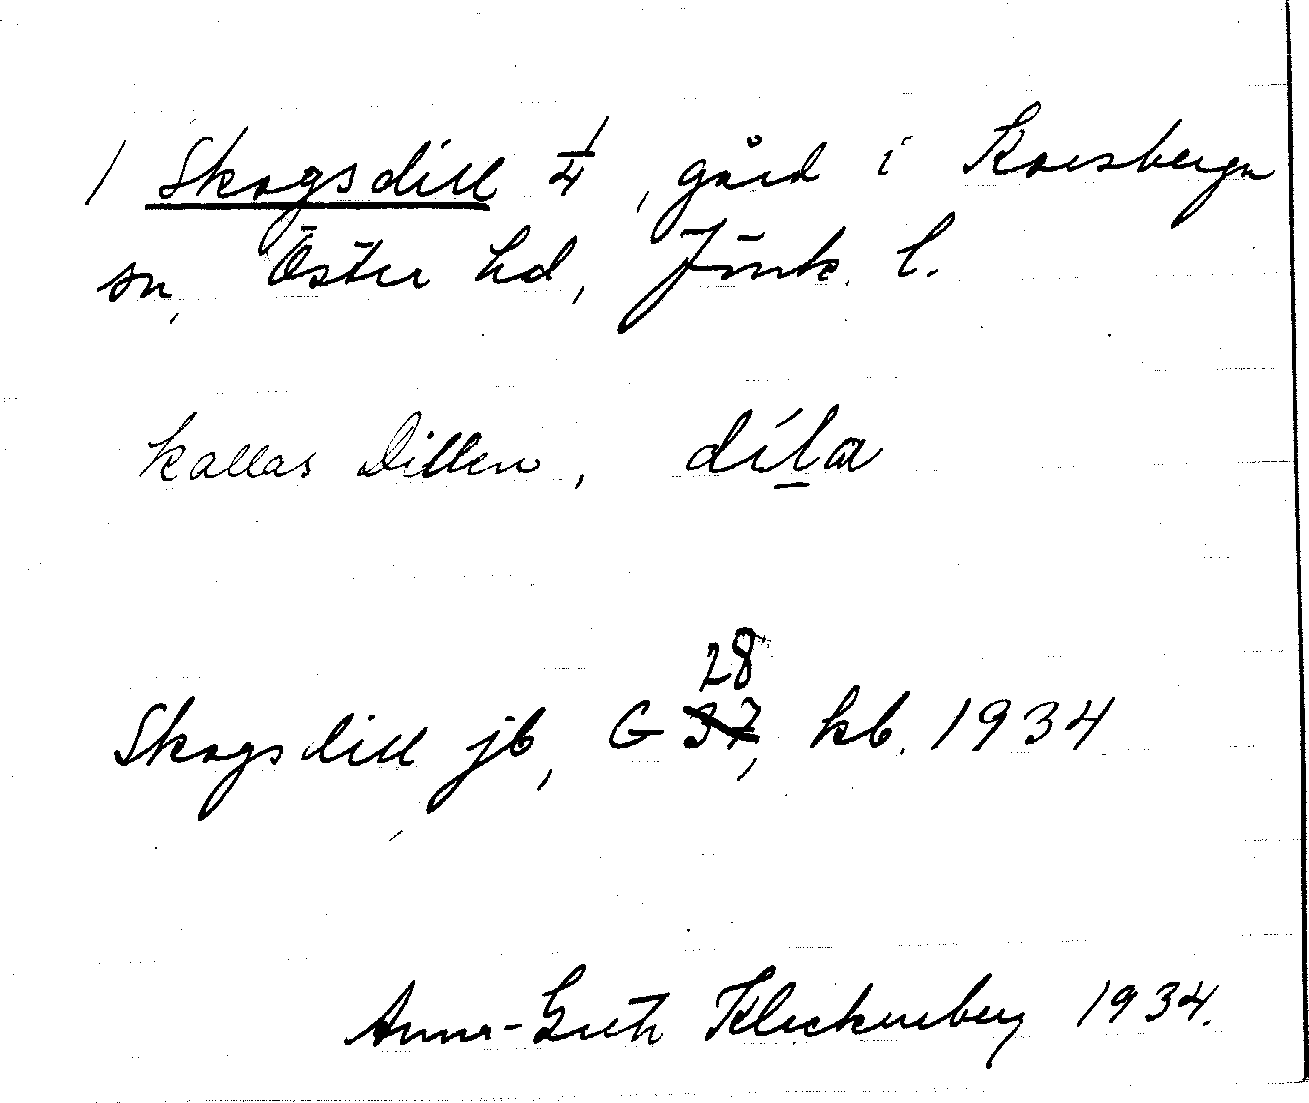 1 Skogsdill 1/4, gård i Korsberga
sn, Öster hd, Jönk. l.
kallas Dillen, díḻa
28
Skogsdill jb, G 37, kb. 1934
Anna-Greth Kleckenberg 1934.